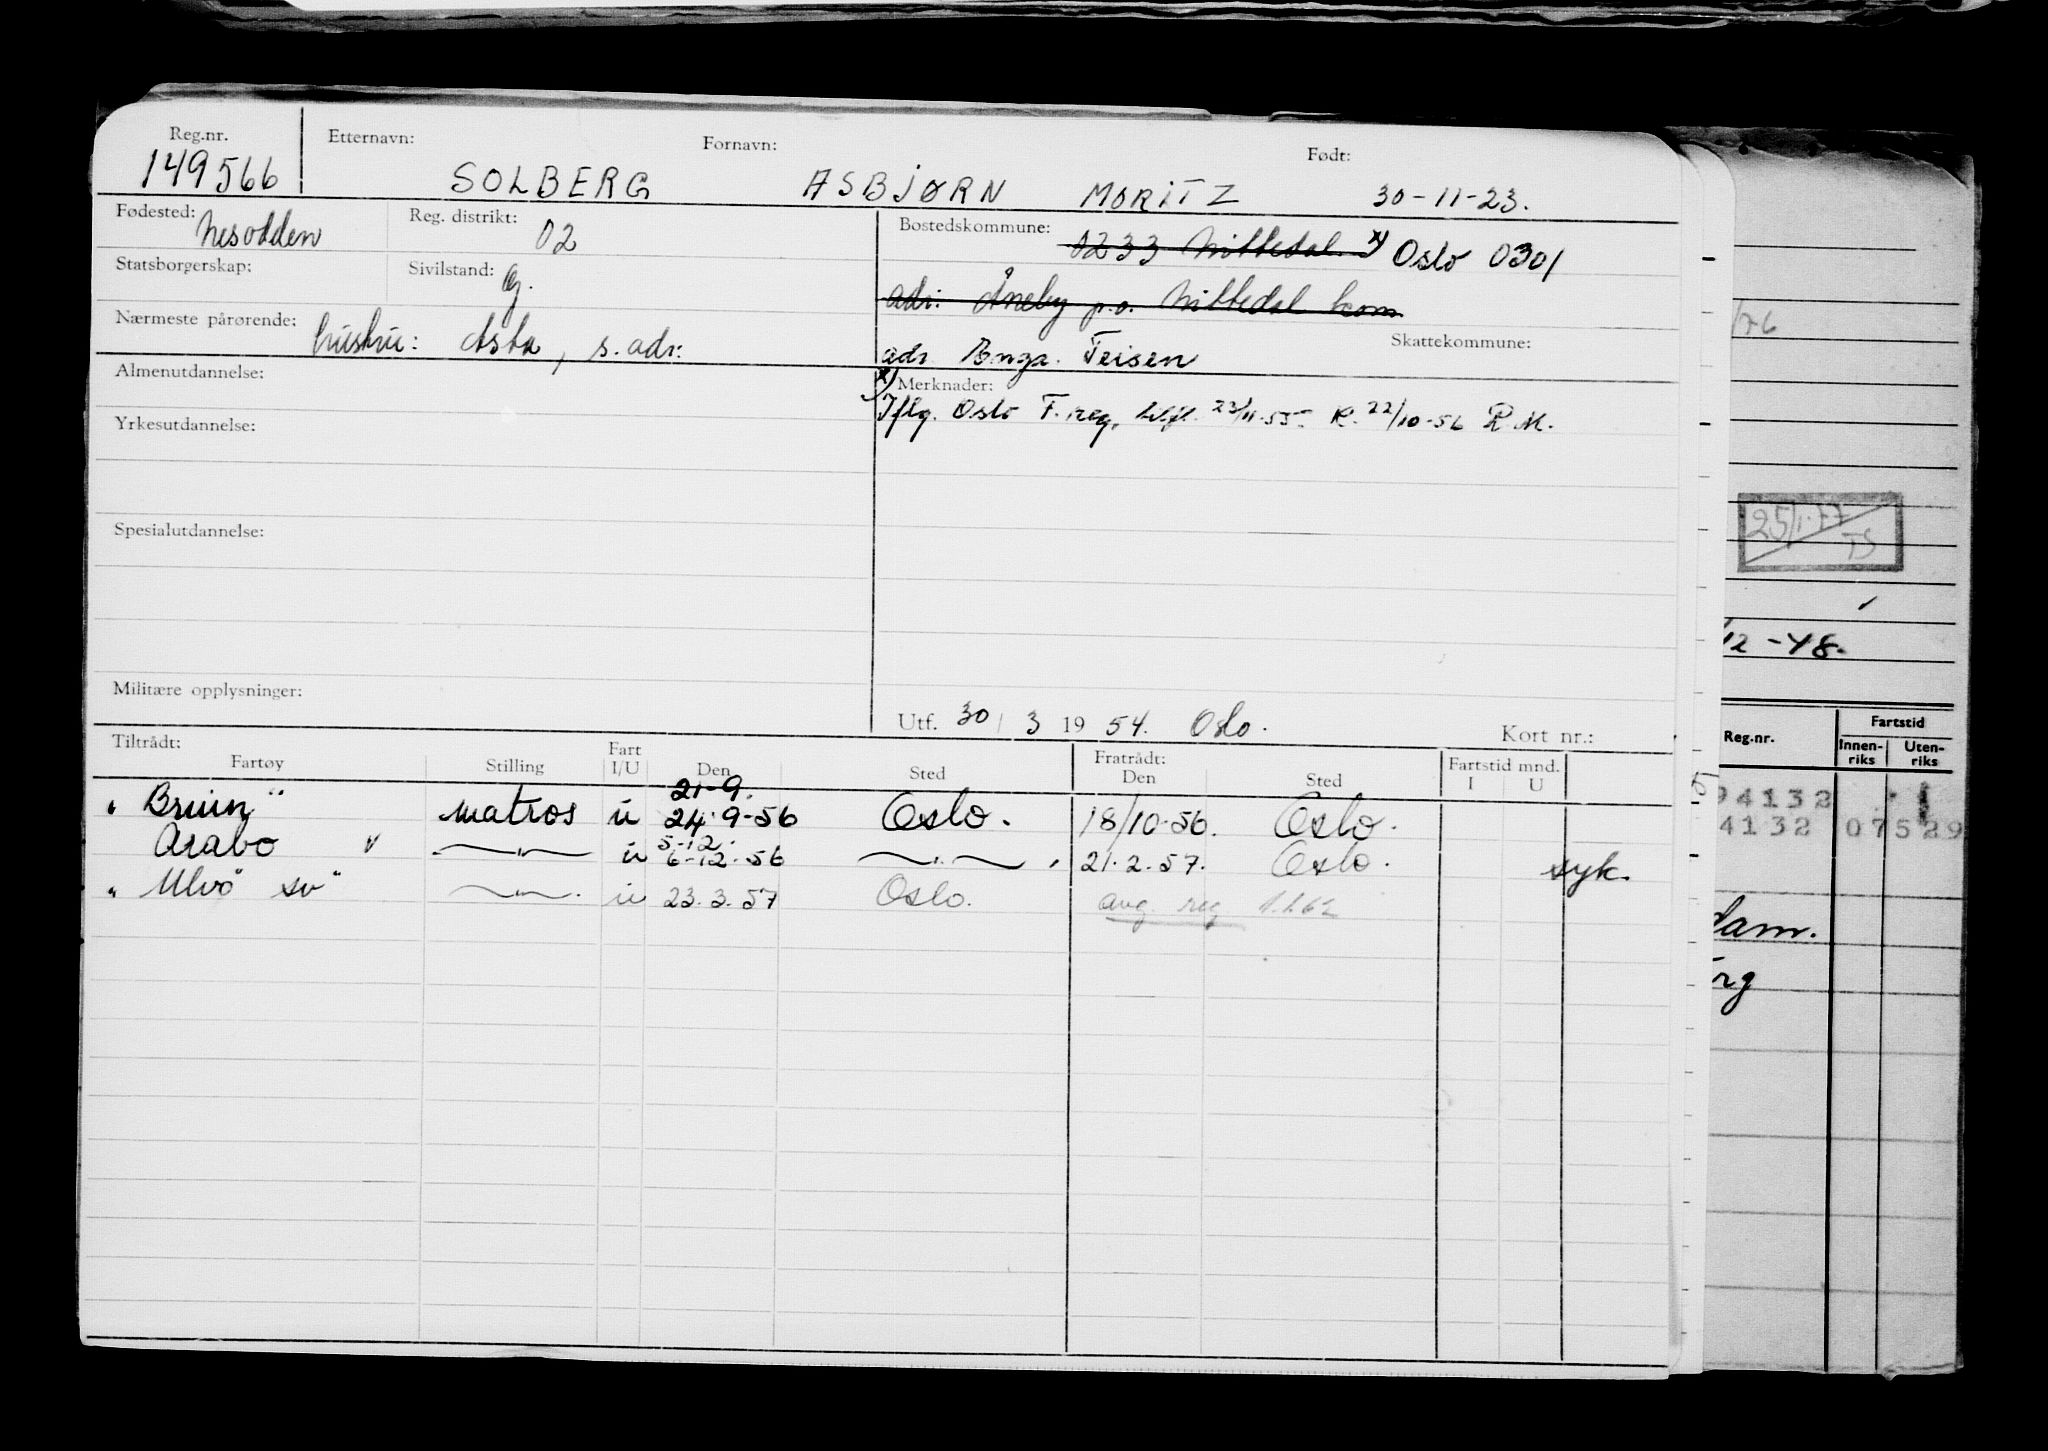 Reg.nr. Etternavn: Fornavn: Født:
149566 SOLBERG ASBJØRN MORITZ 30-11-23.
Fødested: Nesodden Reg. distrikt: 02 Bostedskommune: 0233 Nittedal x) Oslo 0301
Statsborgerskap: Sivilstand: G. adr: Åneby p.o. Nittedal kom
Nærmeste pårørende: hustru: Asta, s. adr: Skattekommune:
adr Enga. Teisen
Almenutdannelse: x) Merknader:
Iflg. Oslo F. reg. 23/11-55 K. 22/10-56 R.M.
Yrkesutdannelse:
Spesialutdannelse:
Militære opplysninger:
Utf. 30/3 1954. Oslo. Kort nr.:
Tiltrådt: Fratrådt:
Fartøy Stilling Fart I/U Den Sted Den Sted Fartstid mnd. I U
21-9.
"Bruin" matros u 24-9-56 Oslo. 18/10-56. Oslo.
5-12.
Arabo " —"— u 6-12-56 —"— 21-2-57. Oslo. syk.
"Ulvö" sv" —"— u 23.3.57 Oslo. avg. reg 1.1.62
/76
25/1-77
TS
/12-48.
Reg.nr. Fartstid
Innen-riks Uten-riks
94132
4132 07529
dam.
rg